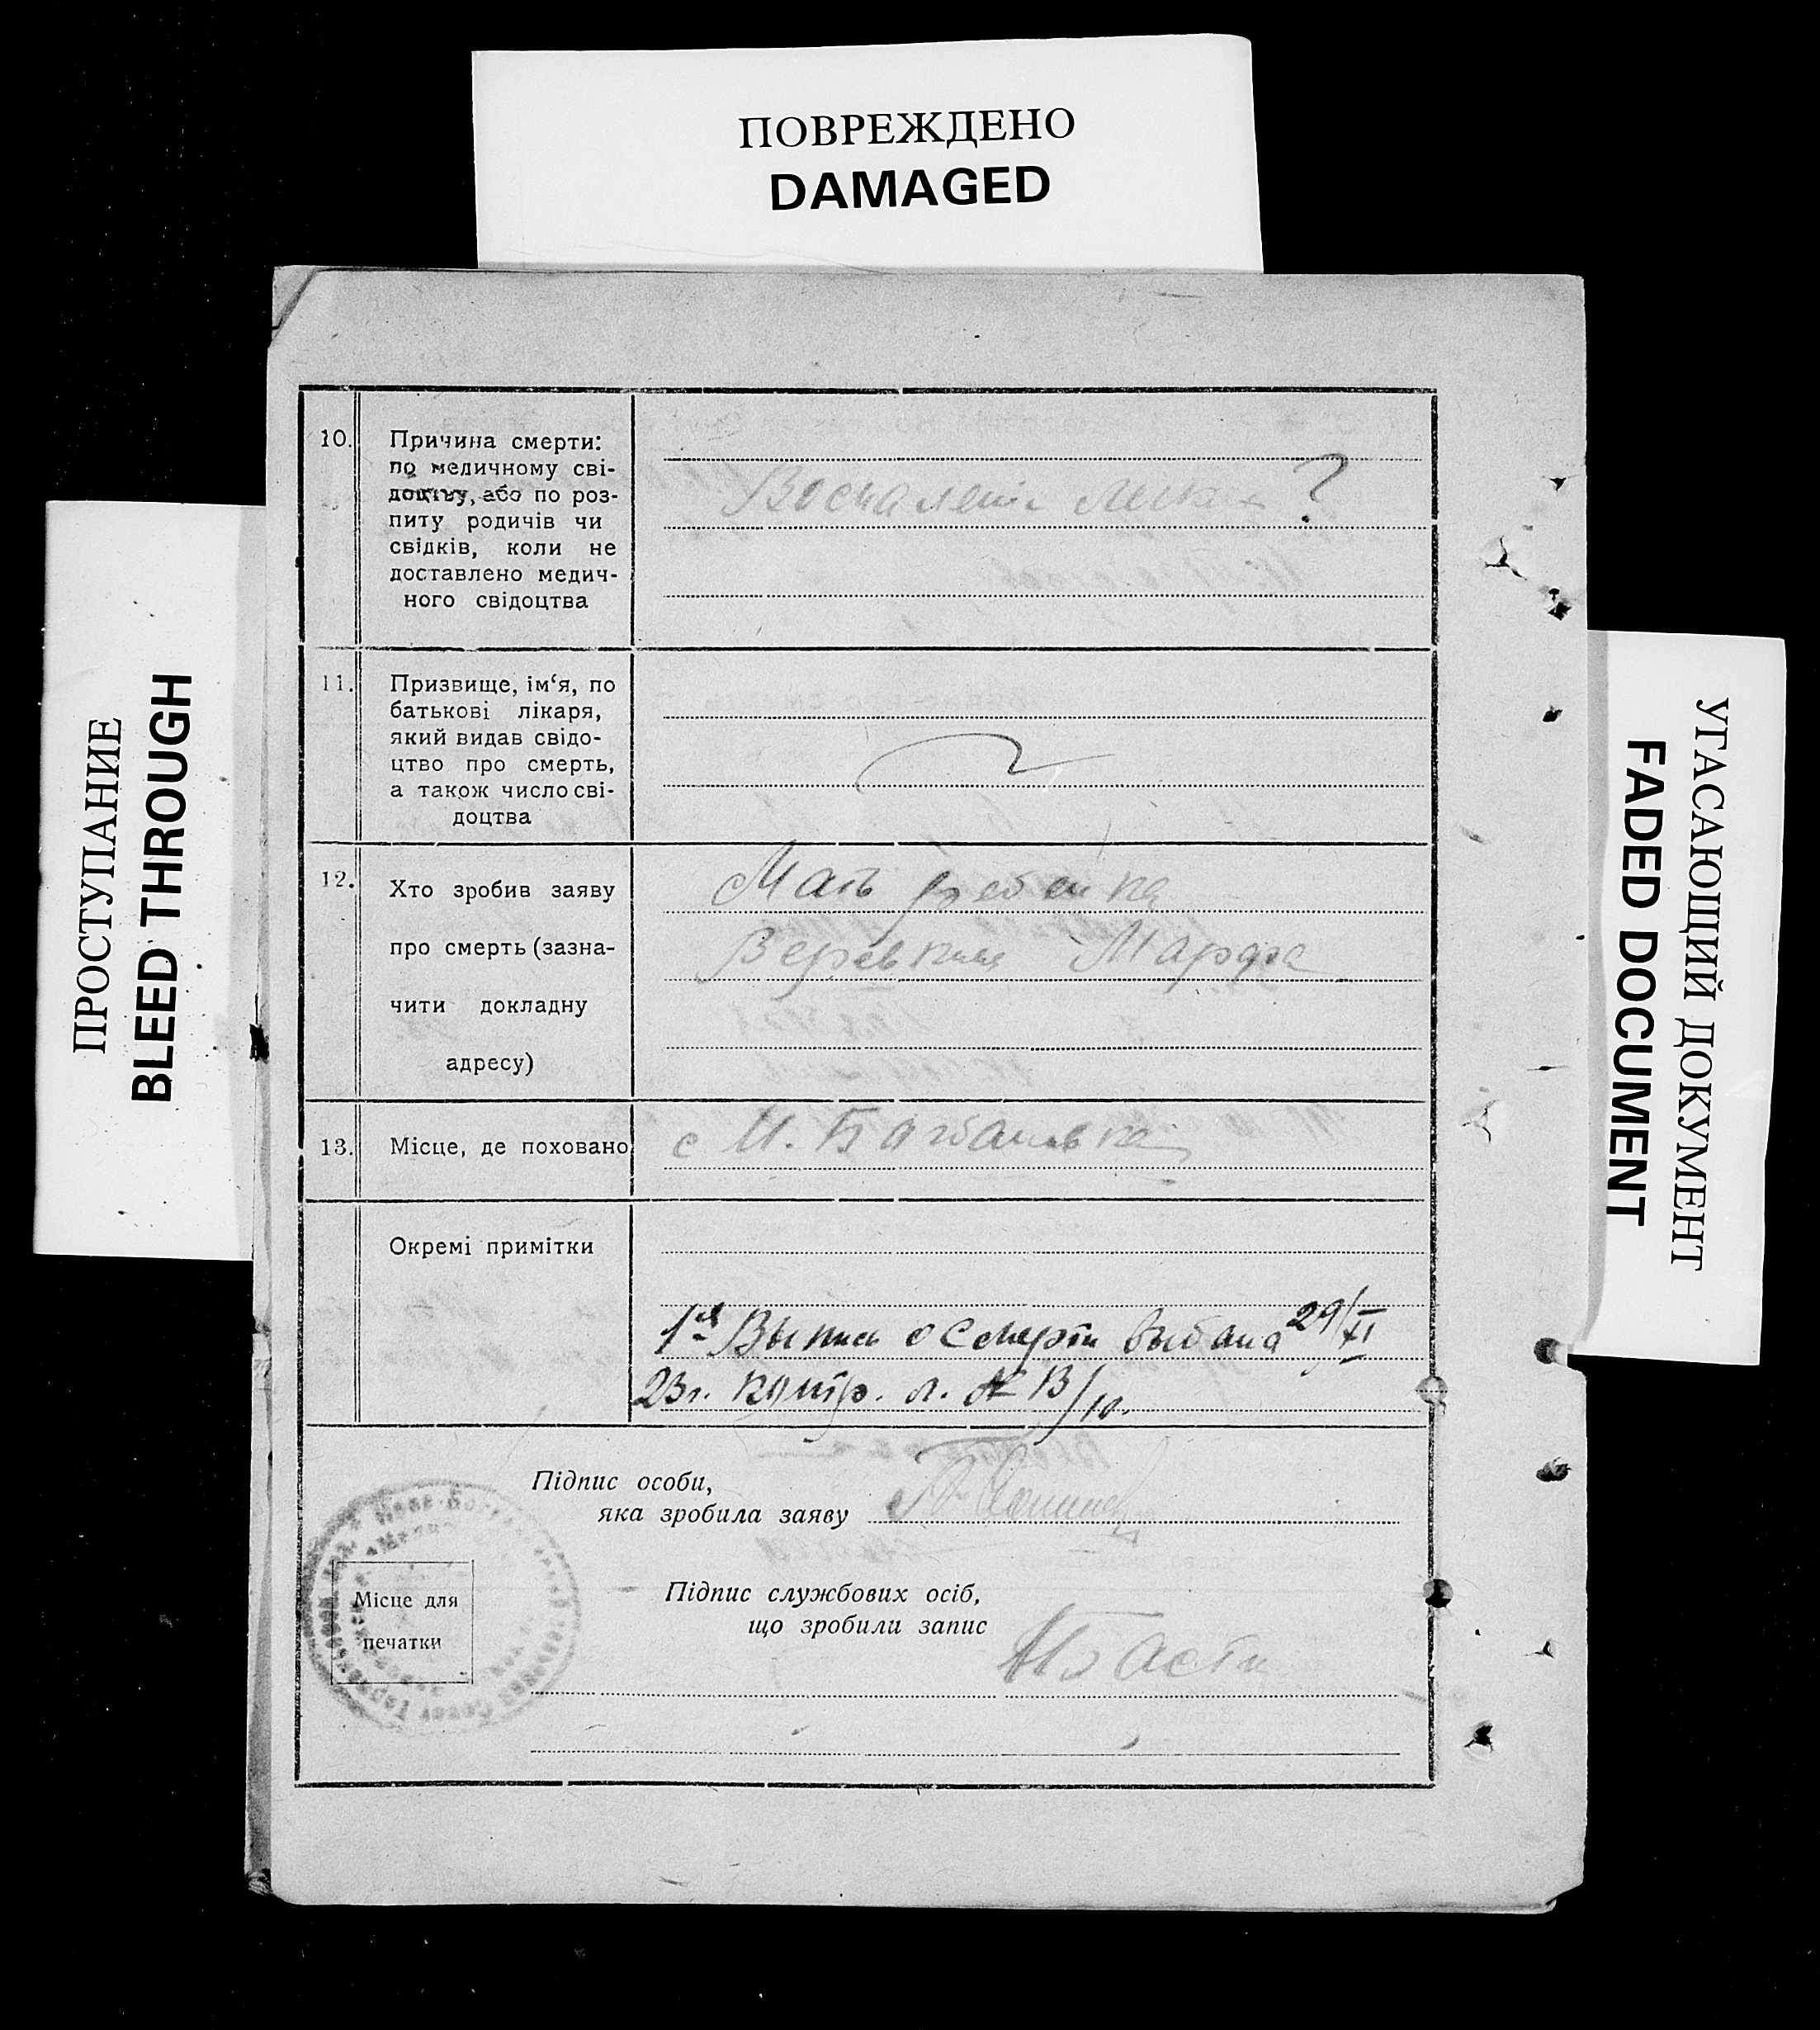 ПОВРЕЖДЕНО
DAMAGED
ПРОСТУПАНИЕ
BLEED THROUGH
10.
Причина смерти:
по медичному сві-
доцтву, або по роз-
питу родичів чи
свідків, коли не
доставлено медич-
ного свідоцтва
Воспаление легких ?
11.
Призвище, ім‘я, по
батькові лікаря,
який видав свідо-
цтво про смерть,
а також число сві-
доцтва
12.
Хто зробив заяву
про смерть (зазна-
чити докладну
адресу)
Мать ребенка
Марфа
13.
Місце, де поховано
с Н. Богдановка
Окремі примітки
1ая Выпись о смерти выдана 29/XI
23г. контр. л. № 13/10.
Підпис особи,
яка зробила заяву
Підпис службових осіб,
що зробили запис
Місце для
печатки
УГАСАЮЩИЙ ДОКУМЕНТ
FADED DOCUMENT